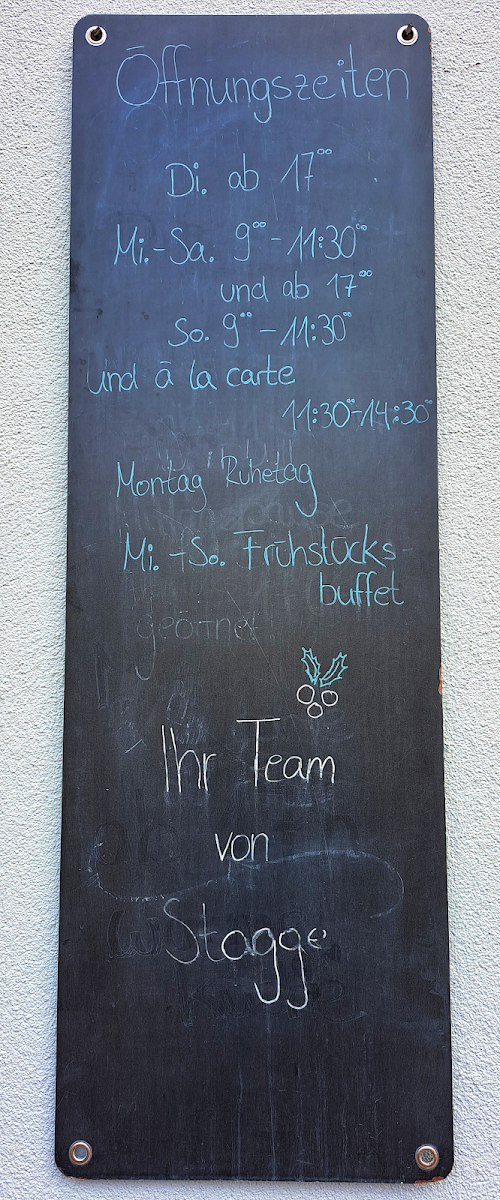 Öffnungszeiten
Di. ab 17⁰⁰
Mi.-Sa. 9⁰⁰-11:30⁰⁰
und ab 17⁰⁰
So. 9⁰⁰-11:30⁰⁰
und á la carte
11:30⁰⁰-14:30⁰⁰
Montag Ruhetag
Mi. -So. Frühstücks-
buffet
geöffnet
Ihr Team
von
Stagge